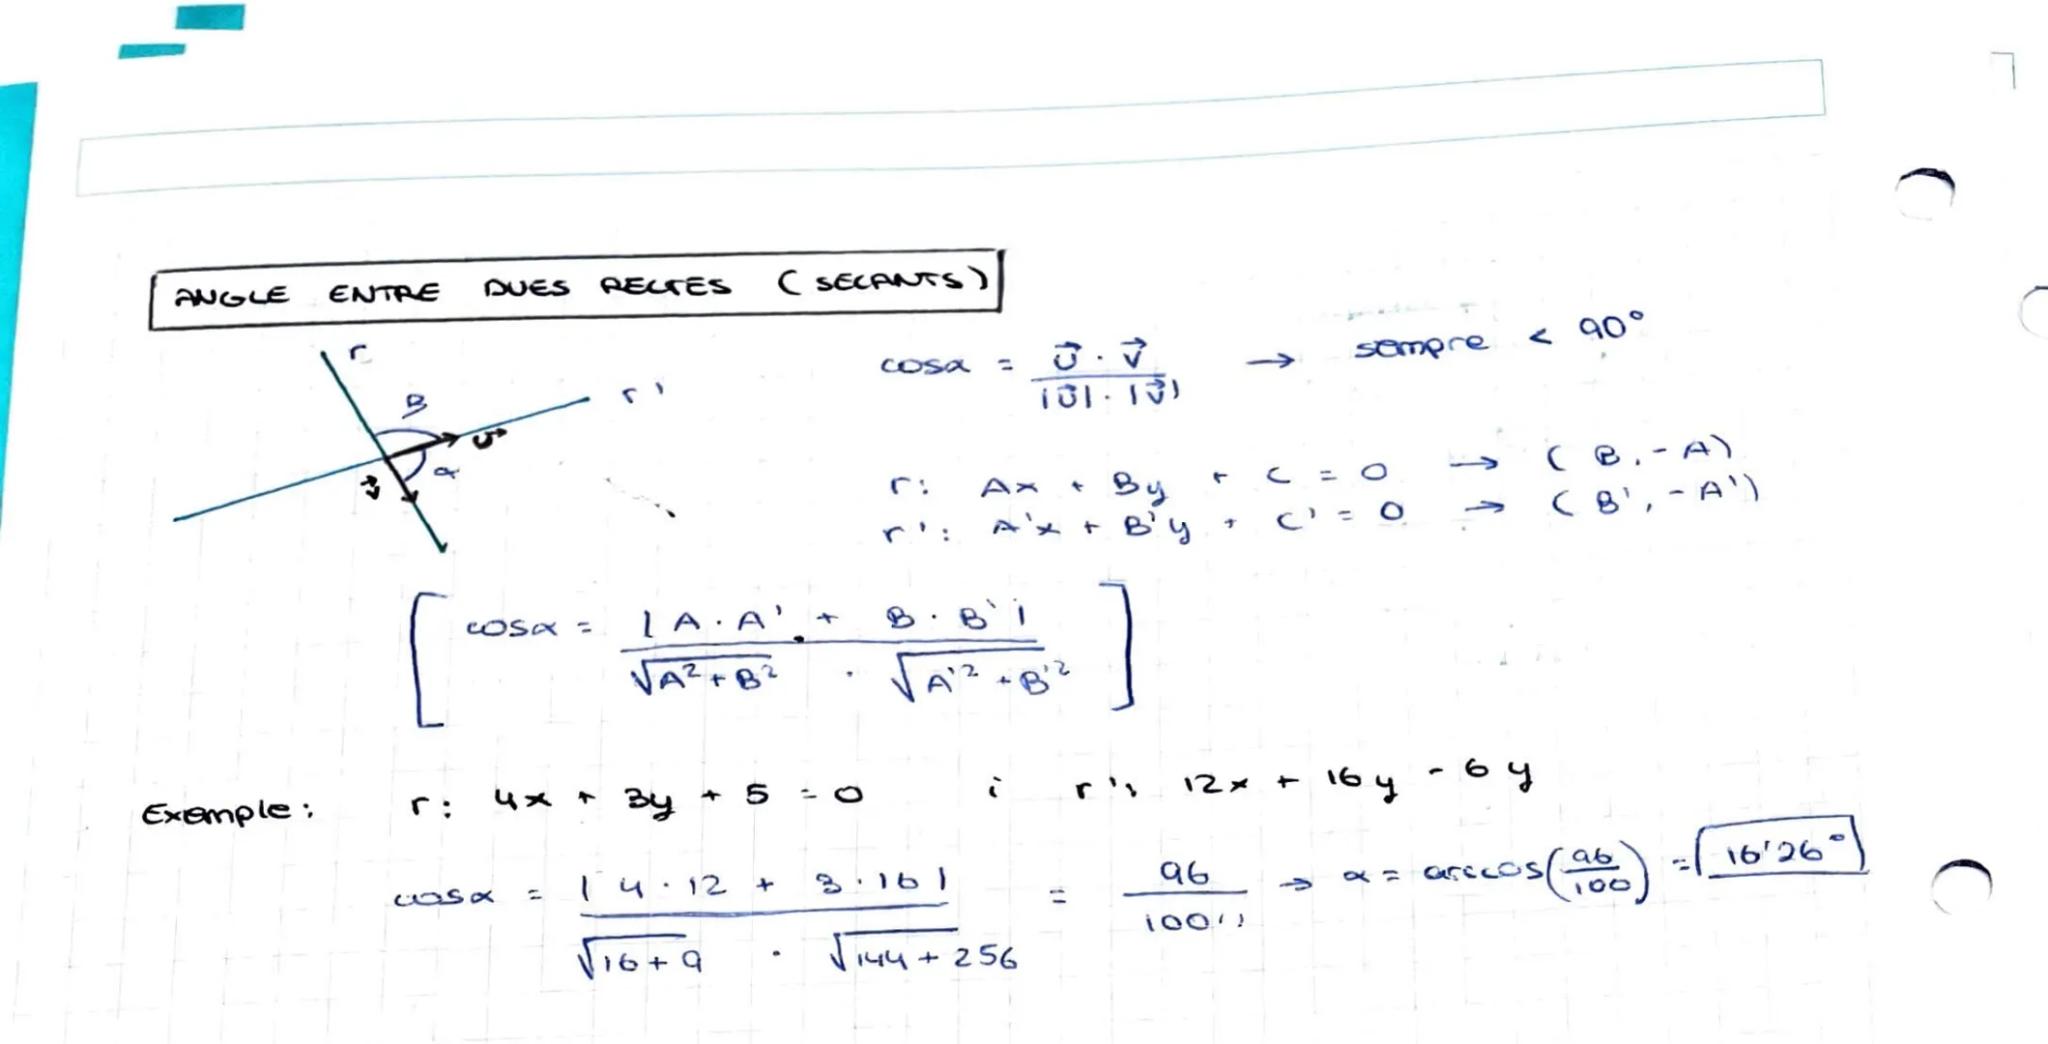 ANGLE ENTRE DUES RECTES (SECANTS)
r
r'
β
α
u⃗
v⃗
cosα = u⃗ · v⃗ / |u⃗| · |v⃗| → sempre < 90°
r: Ax + By + C = 0 → (B, -A)
r': A'x + B'y + C' = 0 → (B', -A')
[ cosα = |A · A' + B · B'| / √A² + B² · √A'² + B'² ]
Exemple: r: 4x + 3y + 5 = 0 i r': 12x + 16y - 6y
cosα = |4 · 12 + 3 · 16| / √16 + 9 · √144 + 256 = 96 / 100 → α = arccos(96/100) = 16'26°